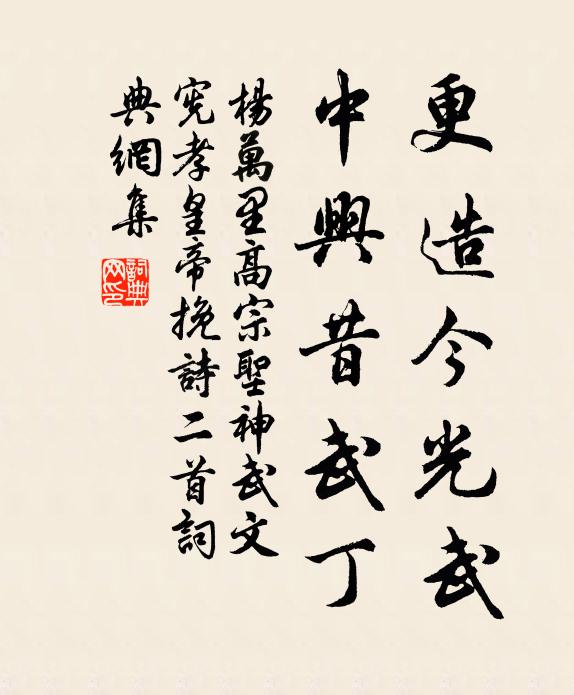 更造今光武
中興昔武丁
楊萬里高宗聖神武文
憲孝皇帝挽詩二首詞
典網集
詞典
网印